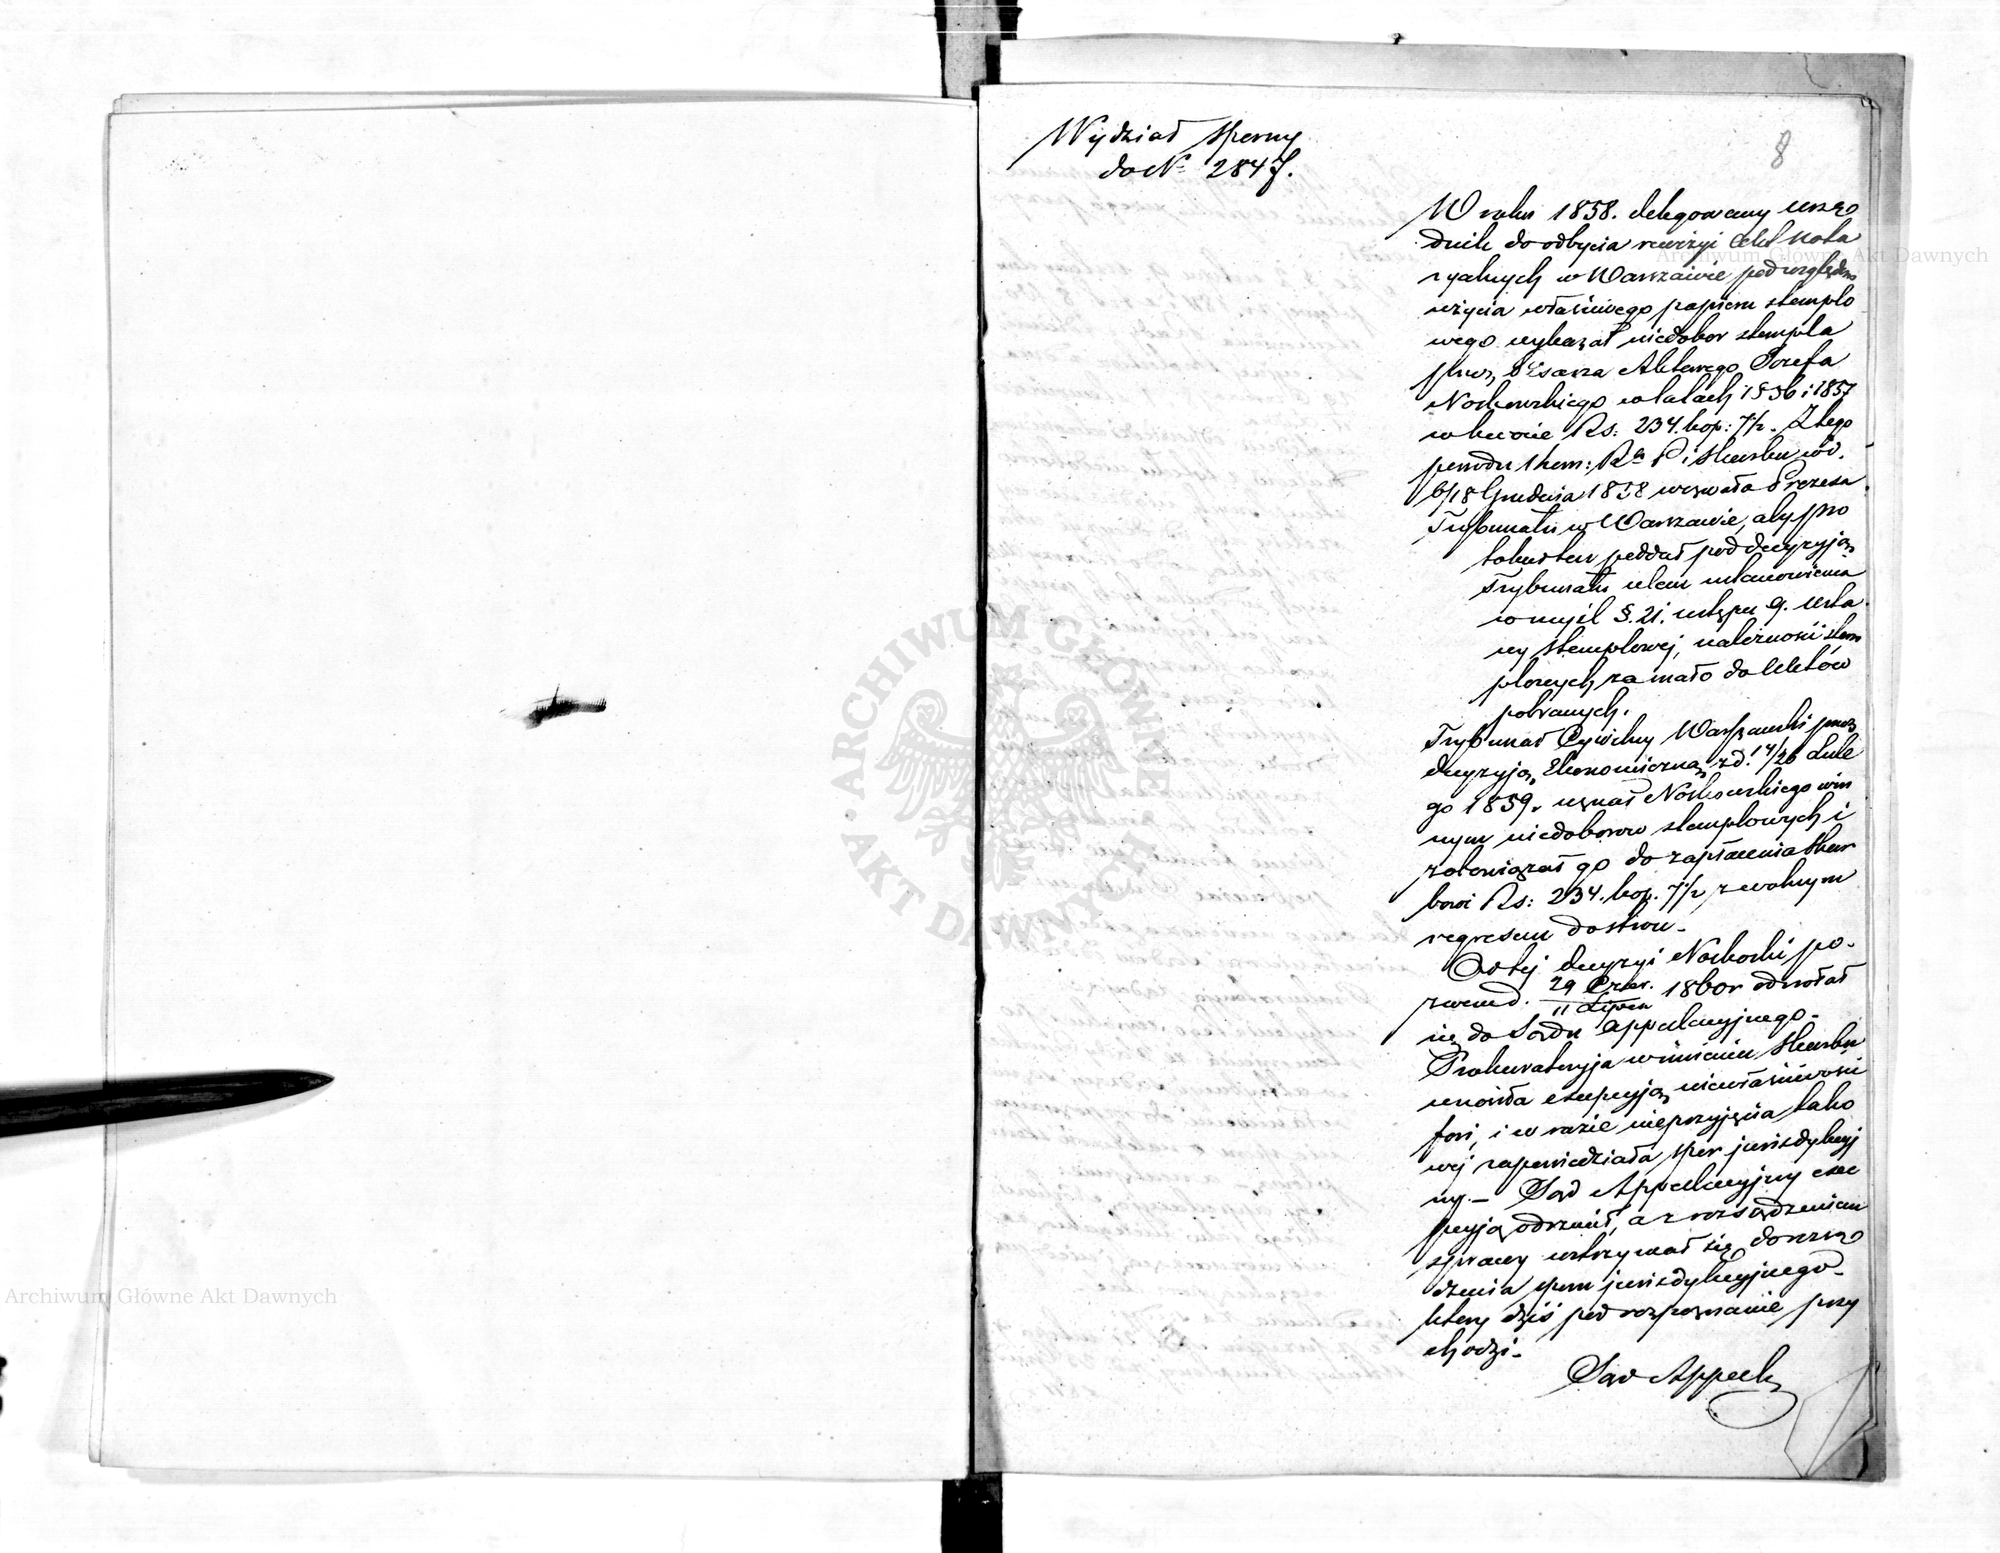 Wydział sporny
do N° 2847.
8
W roku 1858. delegowany urzę
dnik do odbycia rewizyi Akt Nota
ryalnych w Warszawie pod względem
użycia właściwego papieru stemplo
wego wykazał niedobor stempla
przez Pisarza Aktowego Józefa
Noskowskiego w latach 1856 i 1857
w kwocie Rs: 234. kop: 7½. Z tego
powodu Kom: R. P. i Skarbu w d.
6/18 Grudnia 1858 wezwała Prezesa
Trybunału w Warszawie, aby pro
tokuł ten poddał pod decyzyją
Trybunału celem ustanowienia
w myśl §. 21. ustępu 9. usta
wy stemplowej, należności stem
plowych za mało do Aktów
pobranych.
Trybunał Cywilny Warszawski przez
decyzyją Ekonomiczną z d. 14/26 Lute
go 1859. uznał Noskowskiego win
nym niedoborów stemplowych i
zobowiązał go do zapłacenia Skar
bowi Rs: 234. kop. 7½ z wolnym
regresem do stron.
Od tej decyzyi Noskoski po-
zwem d. 29 Czer. / 11 Lipca 1860r odwołał
się do Sądu Appelacyjnego.
Prokuratoryja w imieniu Skarbu
wniosła excepcyją niewłaściwości
fori, i w razie nieprzyjęcia tako
wej zapowiedziała spór jurisdykcyj
ny. – Sąd Appelacyjny exce
pcyją odrzucił, a z rozsądzeniem
sprawy wstrzymał się do rozsą
dzenia sporu jurisdykcyjnego.
który dziś pod rozpoznanie przy
chodzi.
Sąd Appel.
ARCHIWUM GŁÓWNE AKT DAWNYCH
Archiwum Główne Akt Dawnych
Archiwum Główne Akt Dawnych